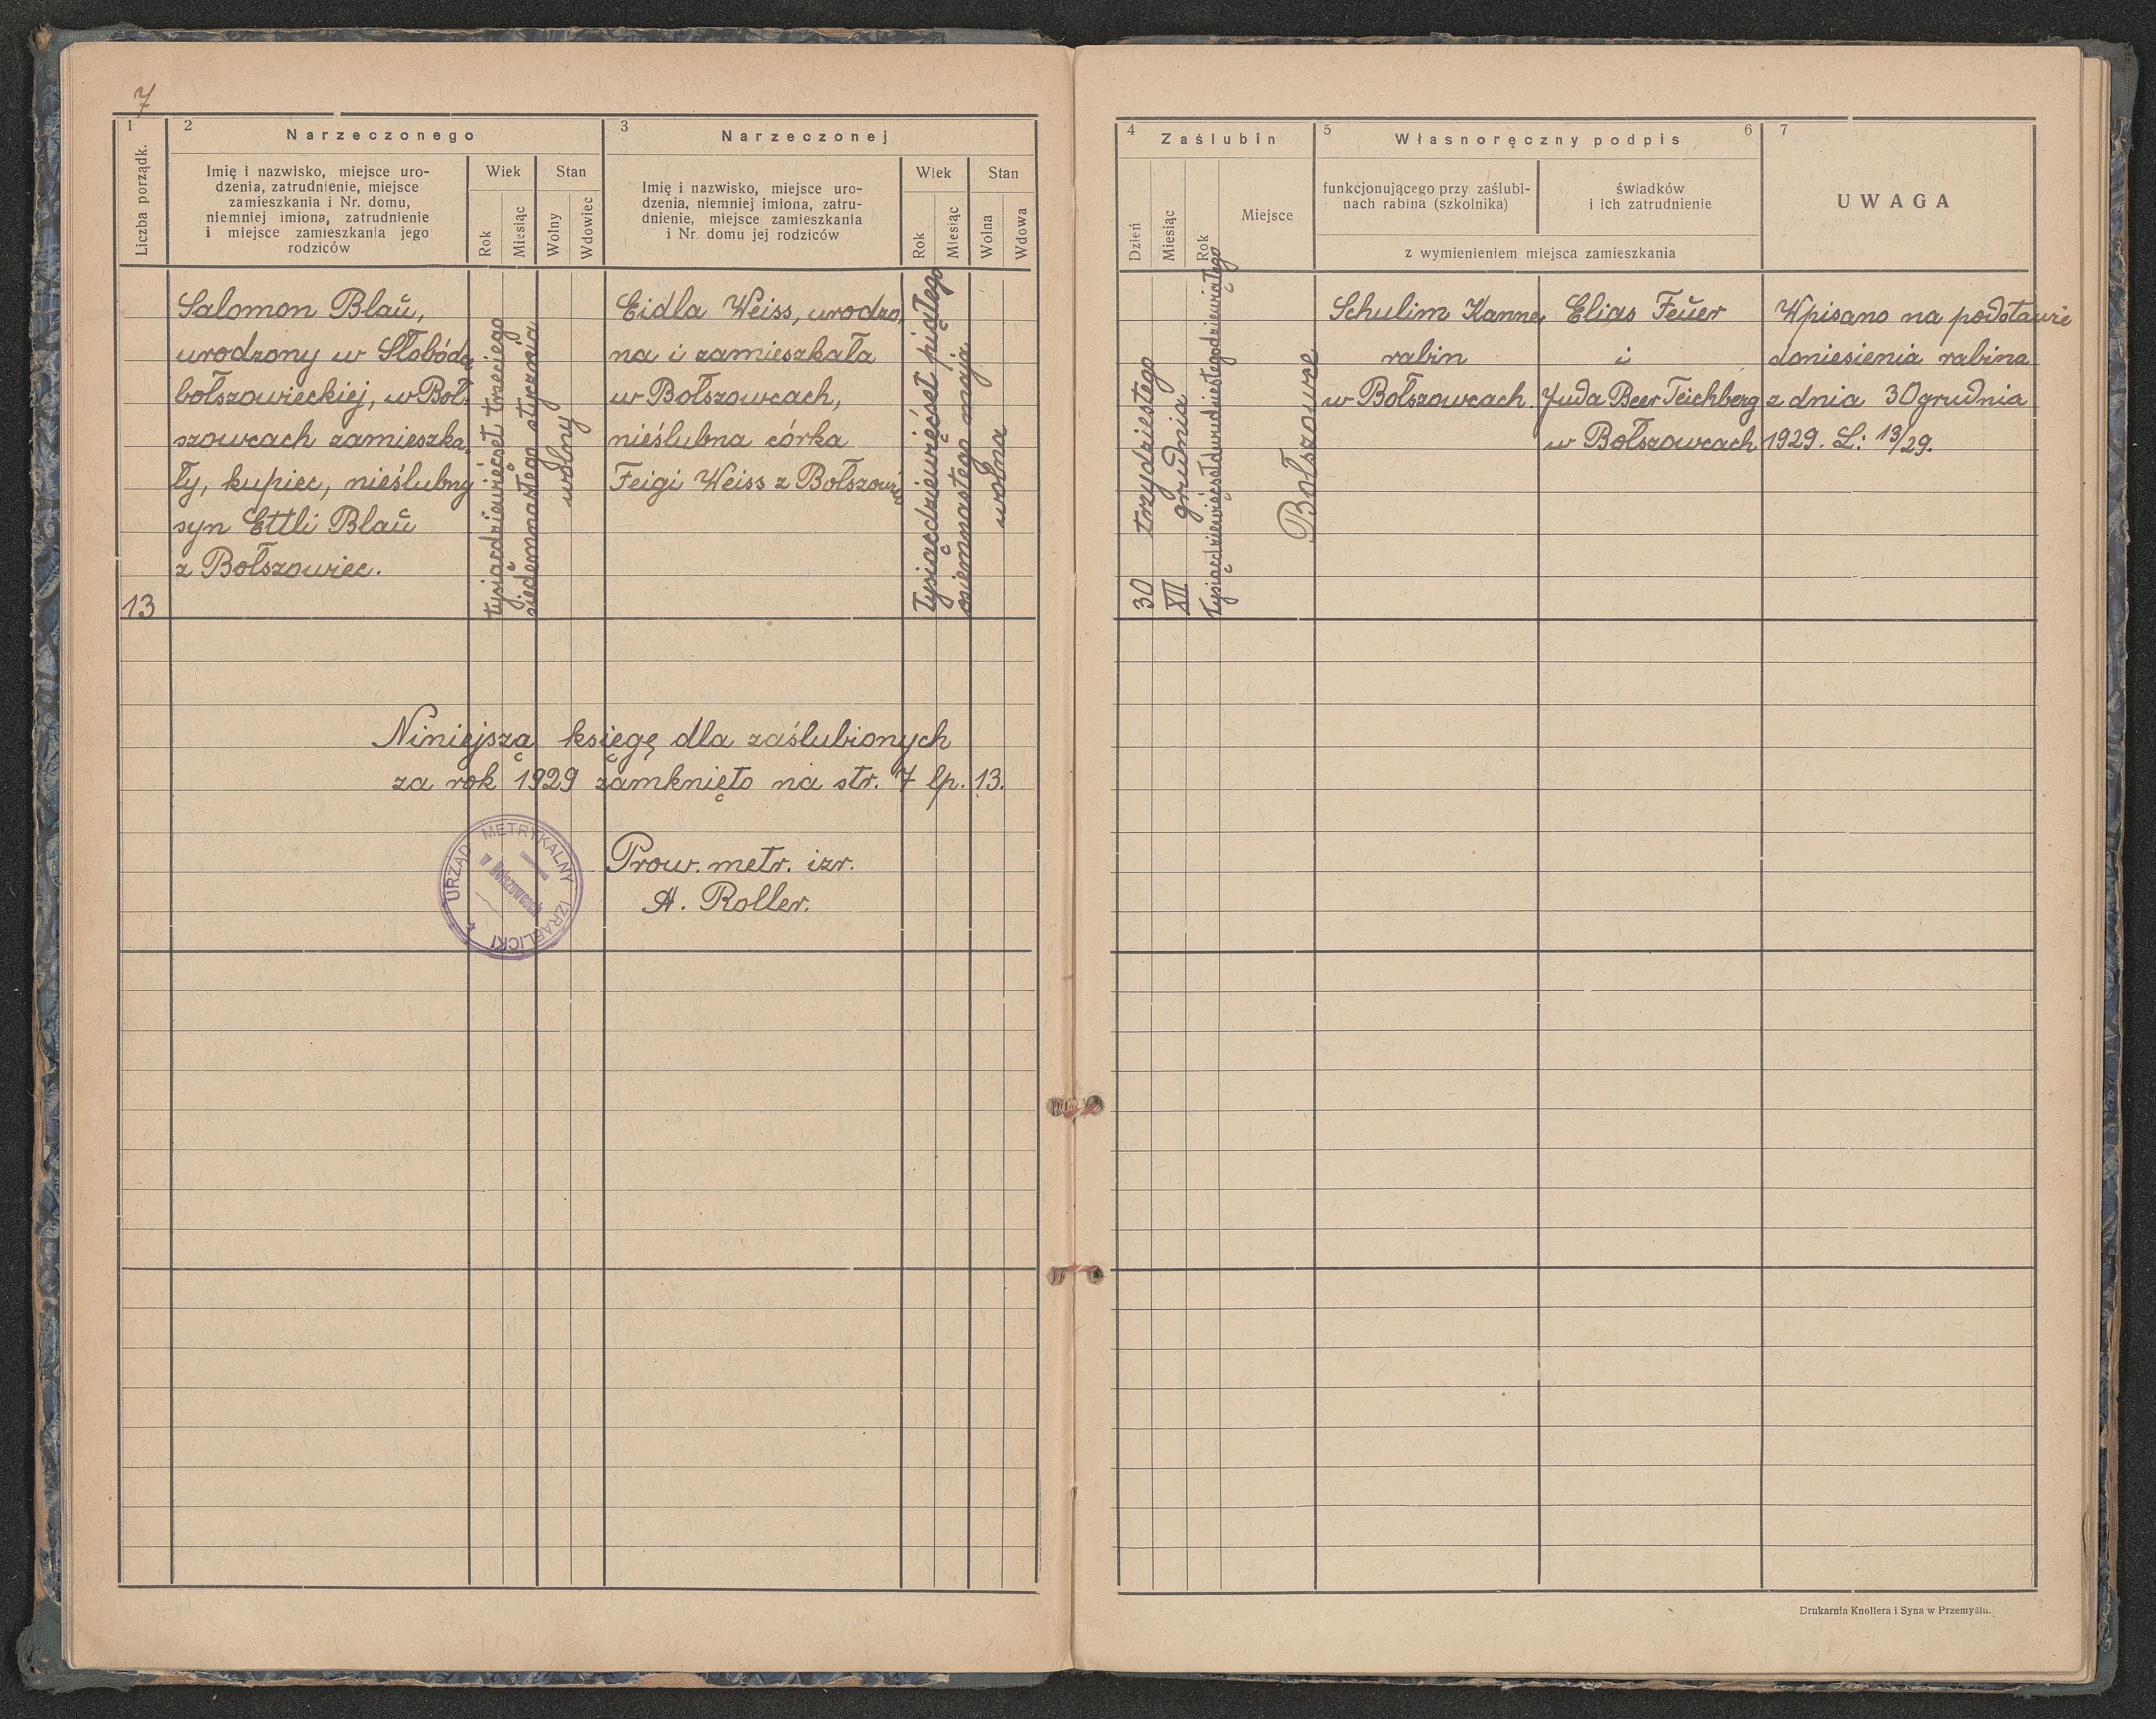 7
1
Liczba porządk.
2
Narzeczonego
Imię i nazwisko, miejsce uro-
dzenia, zatrudnienie, miejsce
zamieszkania i Nr. domu,
niemniej imiona, zatrudnienie
i miejsce zamieszkania jego
rodziców
Wiek
Rok
Miesiąc
Stan
Wolny
Wdowiec
3
Narzeczonej
Imię i nazwisko, miejsce uro-
dzenia, niemniej imiona, zatru-
dnienie, miejsce zamieszkania
i Nr. domu jej rodziców
Wiek
Rok
Miesiąc
Stan
Wolna
Wdowa
4
Zaślubin
Dzień
Miesiąc
Rok
Miejsce
5
Własnoręczny podpis
6
funkcjonującego przy zaślubi-
nach rabina (szkolnika)
świadków
i ich zatrudnienie
z wymienieniem miejsca zamieszkania
7
UWAGA
13
Salomon Blaŭ,
urodzony w Słobódce
bołszowieckiej, w Boł-
szowcach zamieszka-
ły, kupiec, nieślubny
syn Ettli Blaŭ
z Bołszowiec.
tysiącdziewięćset trzeciego
siedemnastego stycznia
wolny
Eidla Weiss, urodzo-
na i zamieszkała
w Bołszowcach,
nieślubna córka
Feigi Weiss z Bołszowiec
tysiącdziewięćset piątego
osiemnastego maja
wolna
30 trzydziestego
XII grudnia
tysiącdziewięćsetdwudziestegodziewiątego
Bołszowce
Schulim Kanner
rabin
w Bołszowcach.
Elias Feŭer
i
Juda Beer Teichberg
w Bołszowcach
Wpisano na podstawie
doniesienia rabina
z dnia 30 grudnia
1929. L: 13/29.
Niniejszą księgę dla zaślubionych
za rok 1929 zamknięto na str. 7 lp. 13.
URZĄD METRYKALNY IZRAELICKI
w Bołszowcach
Prow. metr. izr.
A. Roller.
Drukarnia Knollera i Syna w Przemyślu.